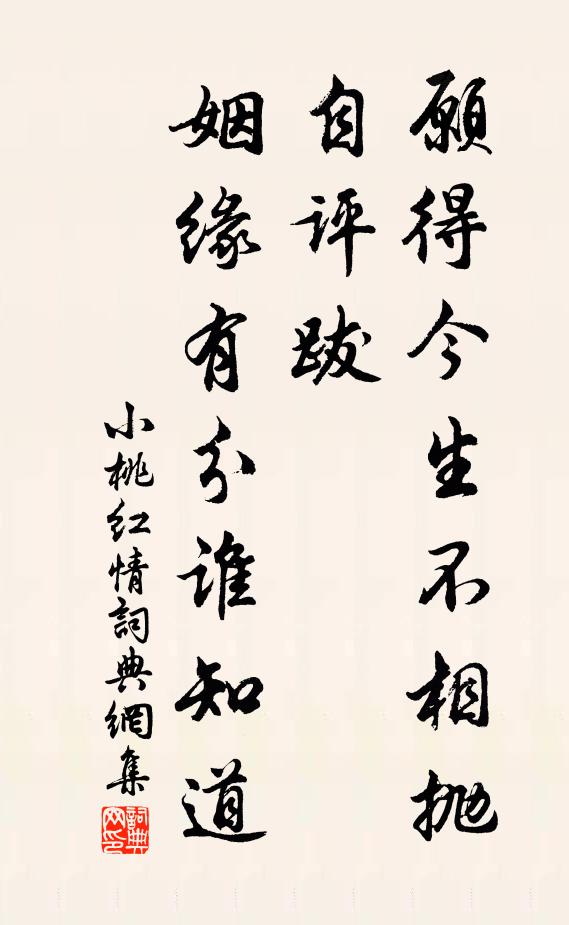 願得今生不相拋
自評跋
姻緣有分誰知道
小桃紅情詞典網集
詞典
网印